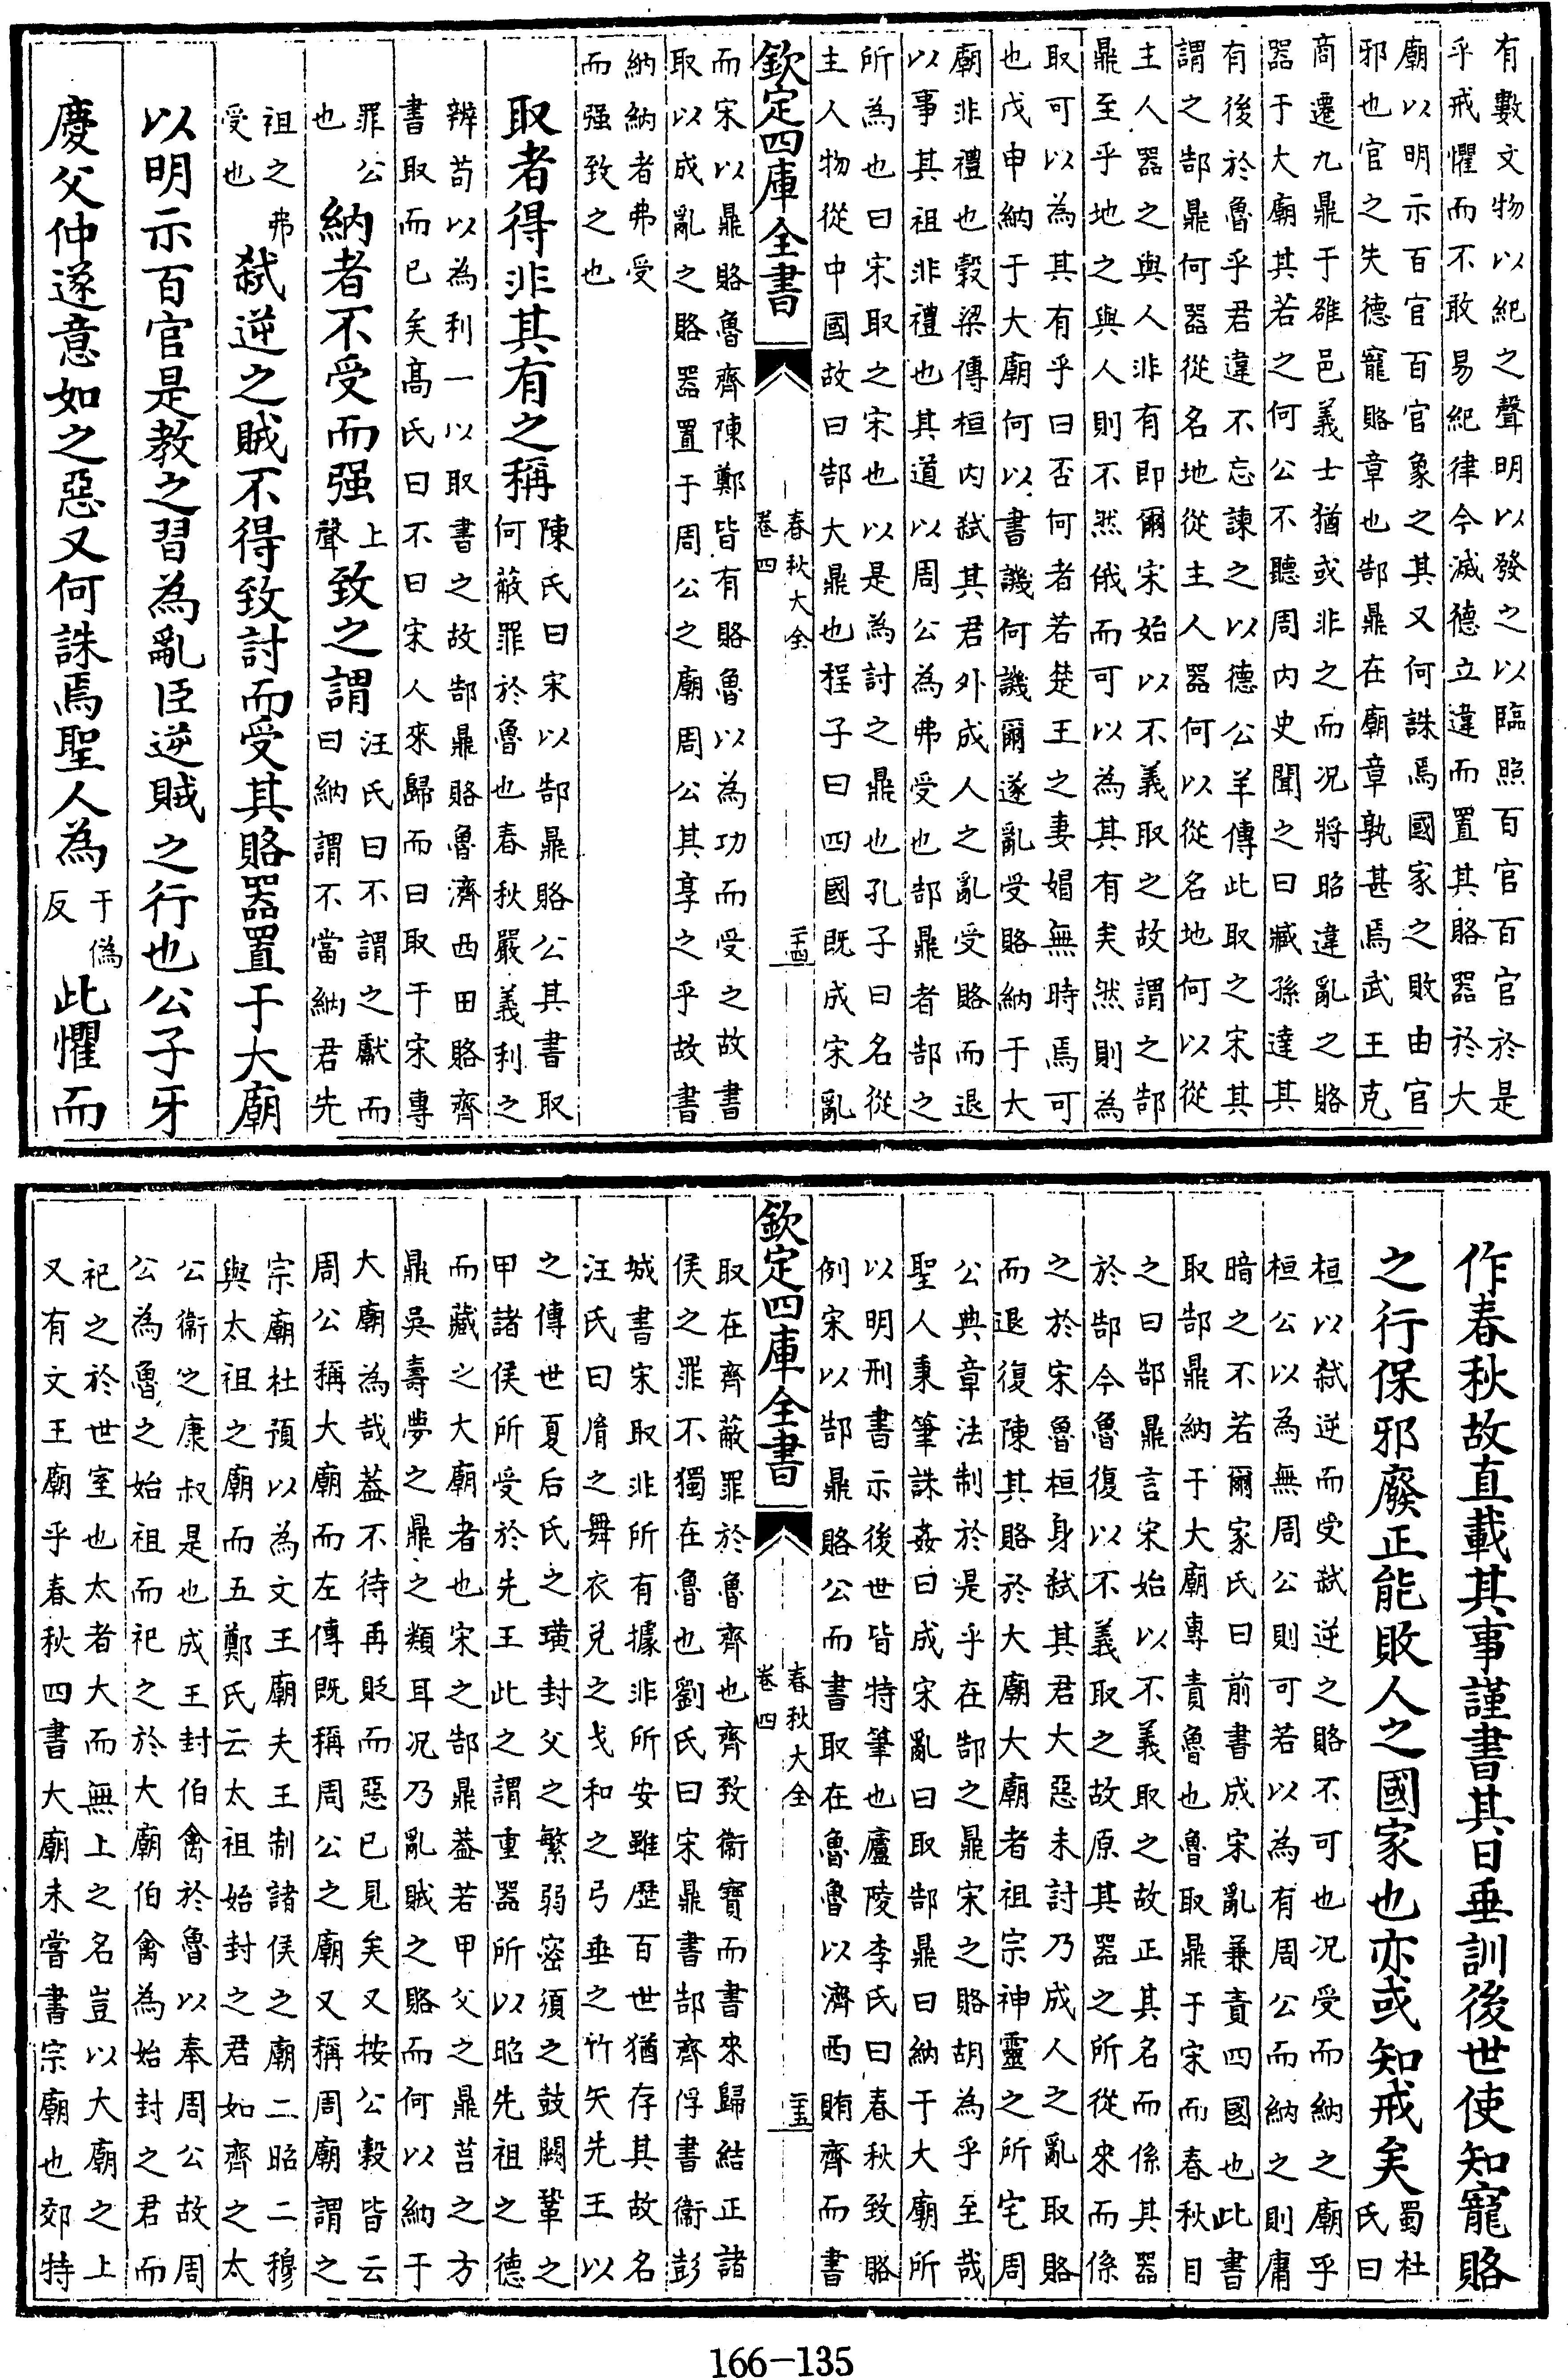 有數文物以紀之聲明以發之以臨照百官百官於是
乎戒懼而不敢易紀律今滅德立違而置其賂器於大
廟以明示百官百官象之其又何誅焉國家之敗由官
邪也官之失德寵賂章也郜鼎在廟章孰甚焉武王克
商遷九鼎于雒邑義士猶或非之而况將昭違亂之賂
器于大廟其若之何公不聽周内史聞之曰臧孫達其
有後於魯乎君違不忘諫之以德公羊傳此取之宋其
謂之郜鼎何器從名地從主人器何以從名地何以從
主人器之與人非有即爾宋始以不義取之故謂之郜
鼎至乎地之與人則不然俄而可以為其有矣然則為
取可以為其有乎曰否何者若楚王之妻媦無時焉可
也戊申納于大廟何以書譏何譏爾遂亂受賂納于大
廟非禮也穀梁傳桓内弑其君外成人之亂受賂而退
以事其祖非禮也其道以周公為弗受也郜鼎者郜之
所為也曰宋取之宋也以是為討之鼎也孔子曰名從
主人物從中國故曰郜大鼎也程子曰四國既成宋亂
欽定四庫全書
春秋大全
卷四
二十四
而宋以鼎賂魯齊陳鄭皆有賂魯以為功而受之故書
取以成亂之賂器置于周公之廟周公其享之乎故書
納納者弗受
而强致之也
取者得非其有之稱
陳氏曰宋以郜鼎賂公其書取
何蔽罪於魯也春秋嚴義利之
辨苟以為利一以取書之故郜鼎賂魯濟西田賂齊
書取而已矣髙氏曰不曰宋人來歸而曰取于宋專
罪公
也
納者不受而强
上
聲
致之謂
汪氏曰不謂之獻而
曰納謂不當納君先
祖之弗
受也
弑逆之賊不得致討而受其賂器置于大廟
以明示百官是教之習為亂臣逆賊之行也公子牙
慶父仲遂意如之惡又何誅焉聖人為
于僞
反
此懼而
作春秋故直載其事謹書其日垂訓後世使知寵賂
之行保邪廢正能敗人之國家也亦或知戒矣
蜀杜
氏曰
桓以弑逆而受弑逆之賂不可也况受而納之廟乎
桓公以為無周公則可若以為有周公而納之則庸
暗之不若爾家氏曰前書成宋亂兼責四國也此書
取郜鼎納于大廟專責魯也魯取鼎于宋而春秋目
之曰郜鼎言宋始以不義取之故正其名而係其器
於郜今魯復以不義取之故原其器之所從來而係
之於宋魯桓身弑其君大惡未討乃成人之亂取賂
而退復陳其賂於大廟大廟者祖宗神靈之所宅周
公典章法制於是乎在郜之鼎宋之賂胡為乎至哉
聖人秉筆誅姦曰成宋亂曰取郜鼎曰納于大廟所
以明刑書示後世皆特筆也廬陵李氏曰春秋致賂
例宋以郜鼎賂公而書取在魯魯以濟西賄齊而書
欽定四庫全書
春秋大全
卷四
二十五
取在齊蔽罪於魯齊也齊致衛寶而書來歸結正諸
侯之罪不獨在魯也劉氏曰宋鼎書郜齊俘書衛彭
城書宋取非所有據非所安雖歷百世猶存其故名
汪氏曰胤之舞衣兌之戈和之弓垂之竹矢先王以
之傳世夏后氏之璜封父之繁弱密須之鼓闕鞏之
甲諸侯所受於先王此之謂重器所以昭先祖之德
而藏之大廟者也宋之郜鼎葢若甲父之鼎莒之方
鼎吳壽夢之鼎之類耳况乃亂賊之賂而何以納于
大廟為哉葢不待再貶而惡已見矣又按公穀皆云
周公稱大廟而左傳既稱周公之廟又稱周廟謂之
宗廟杜預以為文王廟夫王制諸侯之廟二昭二穆
與太祖之廟而五鄭氏云太祖始封之君如齊之太
公衞之康叔是也成王封伯禽於魯以奉周公故周
公為魯之始祖而祀之於大廟伯禽為始封之君而
祀之於世室也太者大而無上之名豈以大廟之上
又有文王廟乎春秋四書大廟未嘗書宗廟也郊特
166-135